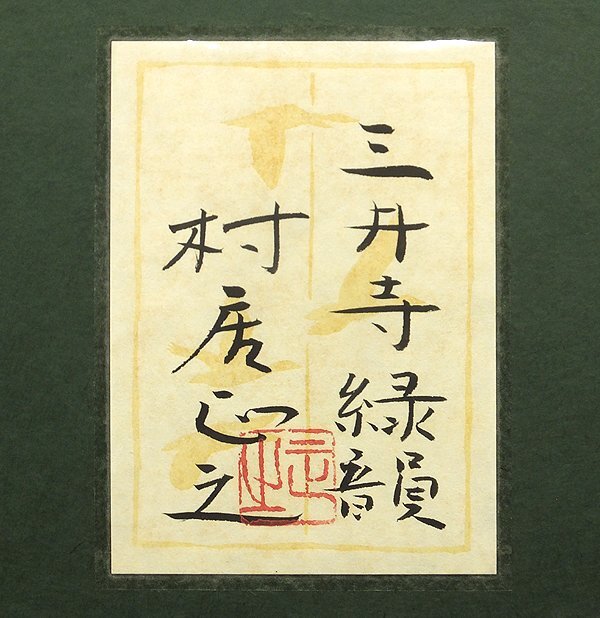 三井寺緑韻
村居正之